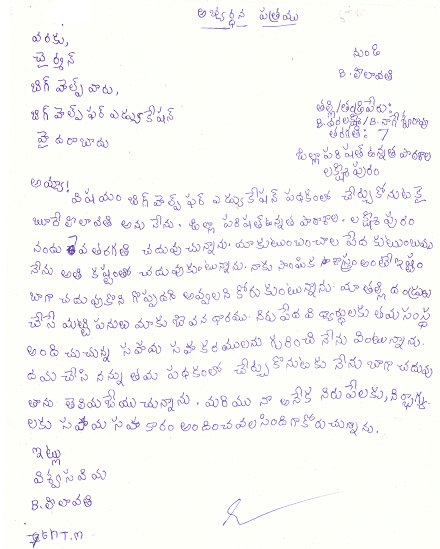 అభ్యర్థన పత్రము
వరకు,
చైర్మన్
బిగ్ హెల్ప్ వారు,
బిగ్ హెల్ప్ ఫర్ ఎడ్యుకేషన్
హైదరాబాదు
నుండి
B. లీలావతి
తల్లి/తండ్రిపేరు:
B. వరలక్ష్మి/B. నాగేశ్వరరావు
తరగతి: 7
జిల్లా పరిషత్ ఉన్నత పాఠశాల
లక్ష్మీపురం
అయ్యా!
విషయం బిగ్ హెల్ప్ ఫర్ ఎడ్యుకేషన్ పథకంలో చేర్చుకొనుటకై
లీలావతి అను నేను. జిల్లా పరిషత్ ఉన్నత పాఠశాల. లక్ష్మీపురం
నందు 7వ తరగతి చదువుచున్నాను. మా కుటుంబం చాలా పేద కుటుంబము
నేను అతి కష్టంతో చదువుకుంటున్నాను. నాకు సాంఘిక శాస్త్రం అంటే ఇష్టం
బాగా చదువుకొని గొప్పదాన్ని అవ్వాలని కోరుకుంటున్నాను. మా తల్లి దండ్రులు
చేసే మట్టి పనులు మాకు జీవనాధారము. నిరుపేద విద్యార్థులకు తమ సంస్థ
అందించుచున్న సహాయ సహకారములను గురించి నేను వింటున్నాను.
దయచేసి నన్ను తమ పథకంలో చేర్చుకొనుటకు నేను బాగా చదువు
తాను తెలియజేయుచున్నాను. మరియు నా అనేక నిరుపేలకు, నిర్భాగ్యు
లకు సహాయ సహకారం అందించవలసిందిగా కోరుచున్నాను.
ఇట్లు
విశ్వసనీయ
B. లీలావతి